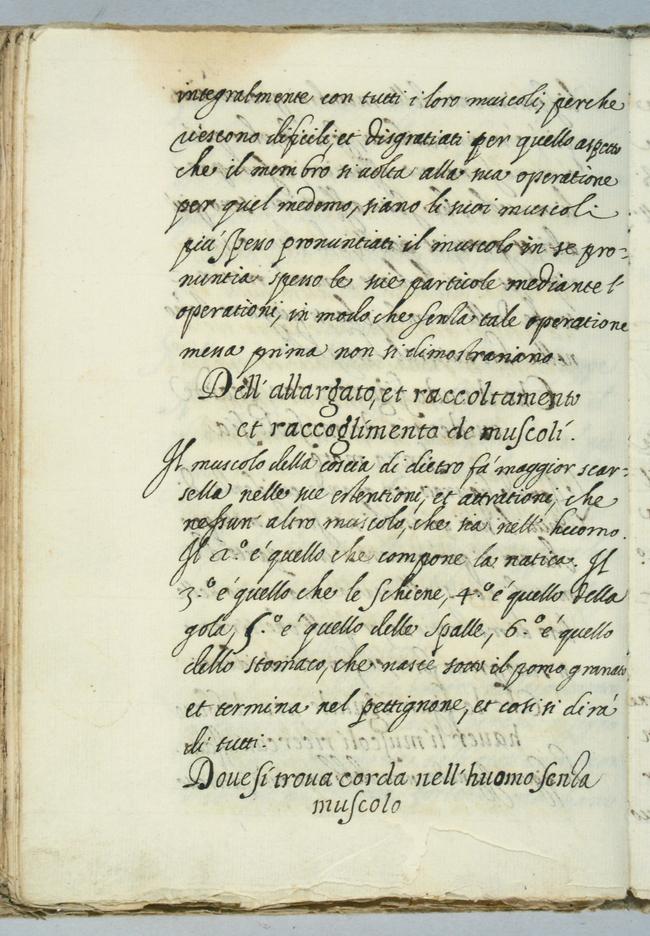 integralmente con tutti i loro muscoli, perche
riescono dificili, et disgratiati per quello aspetto
che il membro si volta alla sua operatione
per quel medemo, siano li suoi muscoli
piu spesso pronuntiati il muscolo in se pro-
nuntia spesso le sue particole mediante l'
operationi, in modo che senza tale operatione
messa prima non si dimostrariano
Dell' allargato, et raccoltamento
et raccoglimento de muscoli.
Il muscolo della coscia di dietro fà maggior scar-
sella nelle sue estentioni, et attrationi, che
nessun' altro muscolo, che sia nell' huomo.
Il 2.º è quello che compone la natica. Il
3.º è quello che le schiene, 4.º è quello della
gola, 5.º è quello delle spalle, 6.º è quello
dello stomaco, che nasce sotto il pomo granato
et termina nel pettignone, et cosi si dirà
di tutti.
Dove si trova corda nell' huomo senza
muscolo